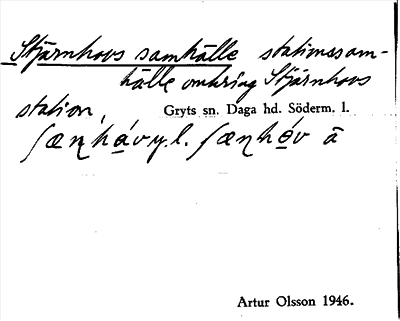 Stjärnhovs samhälle stationssam-
hälle omkring Stjärnhovs
station, Gryts sn. Daga hd. Söderm. l.
ʃæɳhávy.l. ʃæɳhóv ä
Artur Olsson 1946.